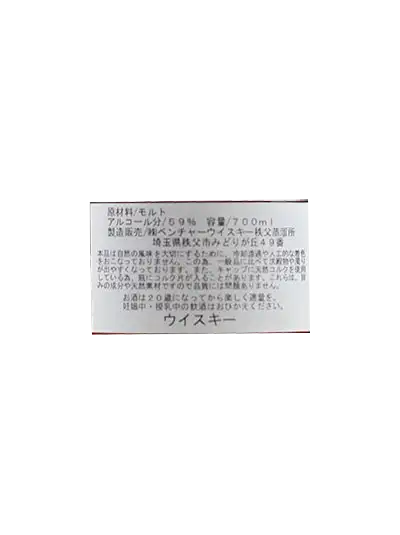 原材料/モルト
アルコール分/59% 容量/700ml
製造販売/㈱ベンチャーウイスキー秩父蒸溜所
埼玉県秩父市みどりが丘49番
本品は自然の風味を大切にするために、冷却濾過や人工的な着色
をおこなっておりません。この為、一般品に比べて沈殿物や濁り
が出やすくなっております。また、キャップに天然コルクを使用
している為、瓶にコルク片が入ることがあります。これらは、旨
みの成分や天然素材ですので品質には問題ありません。
お酒は20歳になってから楽しく適量を。
妊娠中・授乳中の飲酒はおひかえください。
ウイスキー